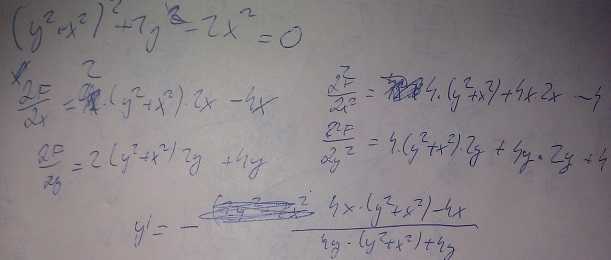 (y²+x²)²+2y²-2x²=0
∂F/∂x = 2·(y²+x²)·2x - 4x
∂²F/∂x² = 4·(y²+x²)+4x·2x - 4
∂F/∂y = 2(y²+x²)2y + 4y
∂²F/∂y² = 4·(y²+x²)·2y + 4y·2y + 4
y' = - (4x·(y²+x²)-4x)/(4y·(y²+x²)+4y)